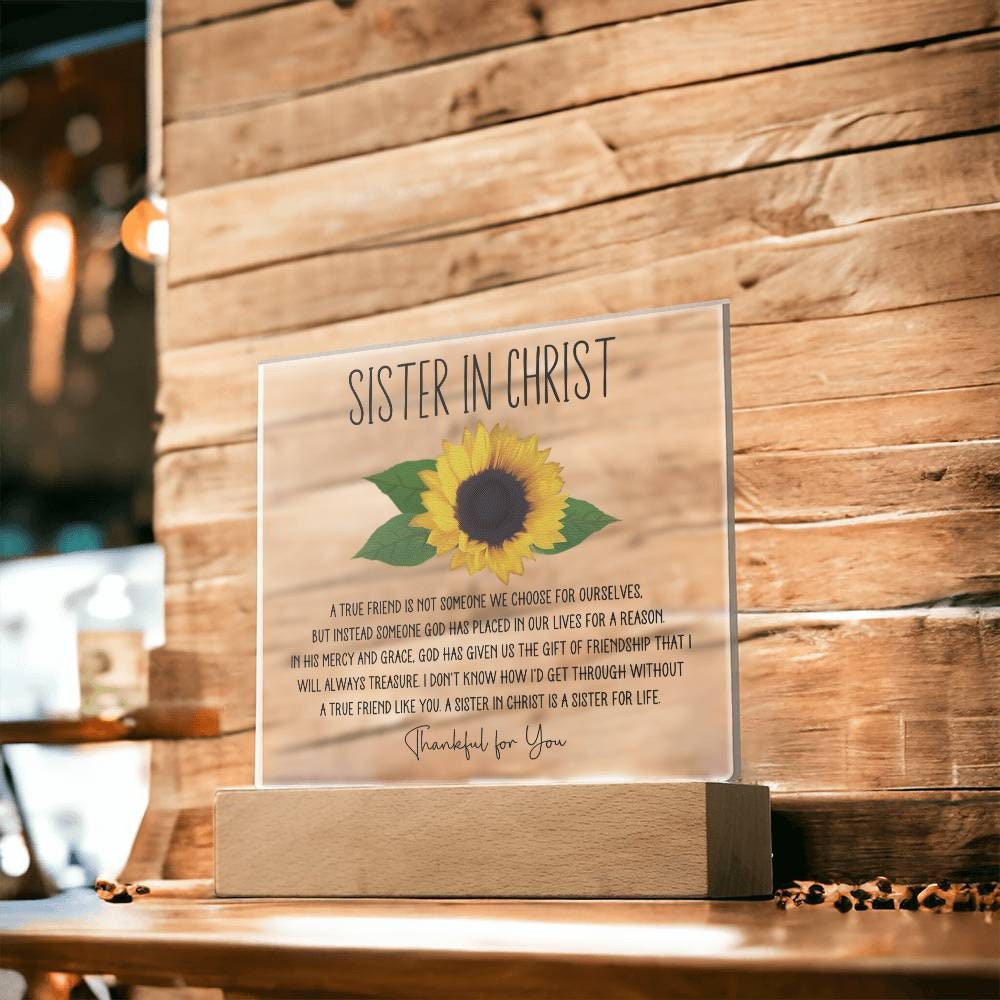 SISTER IN CHRIST
A TRUE FRIEND IS NOT SOMEONE WE CHOOSE FOR OURSELVES,
BUT INSTEAD SOMEONE GOD HAS PLACED IN OUR LIVES FOR A REASON.
IN HIS MERCY AND GRACE, GOD HAS GIVEN US THE GIFT OF FRIENDSHIP THAT I
WILL ALWAYS TREASURE. I DON'T KNOW HOW I'D GET THROUGH WITHOUT
A TRUE FRIEND LIKE YOU. A SISTER IN CHRIST IS A SISTER FOR LIFE.
Thankful for You